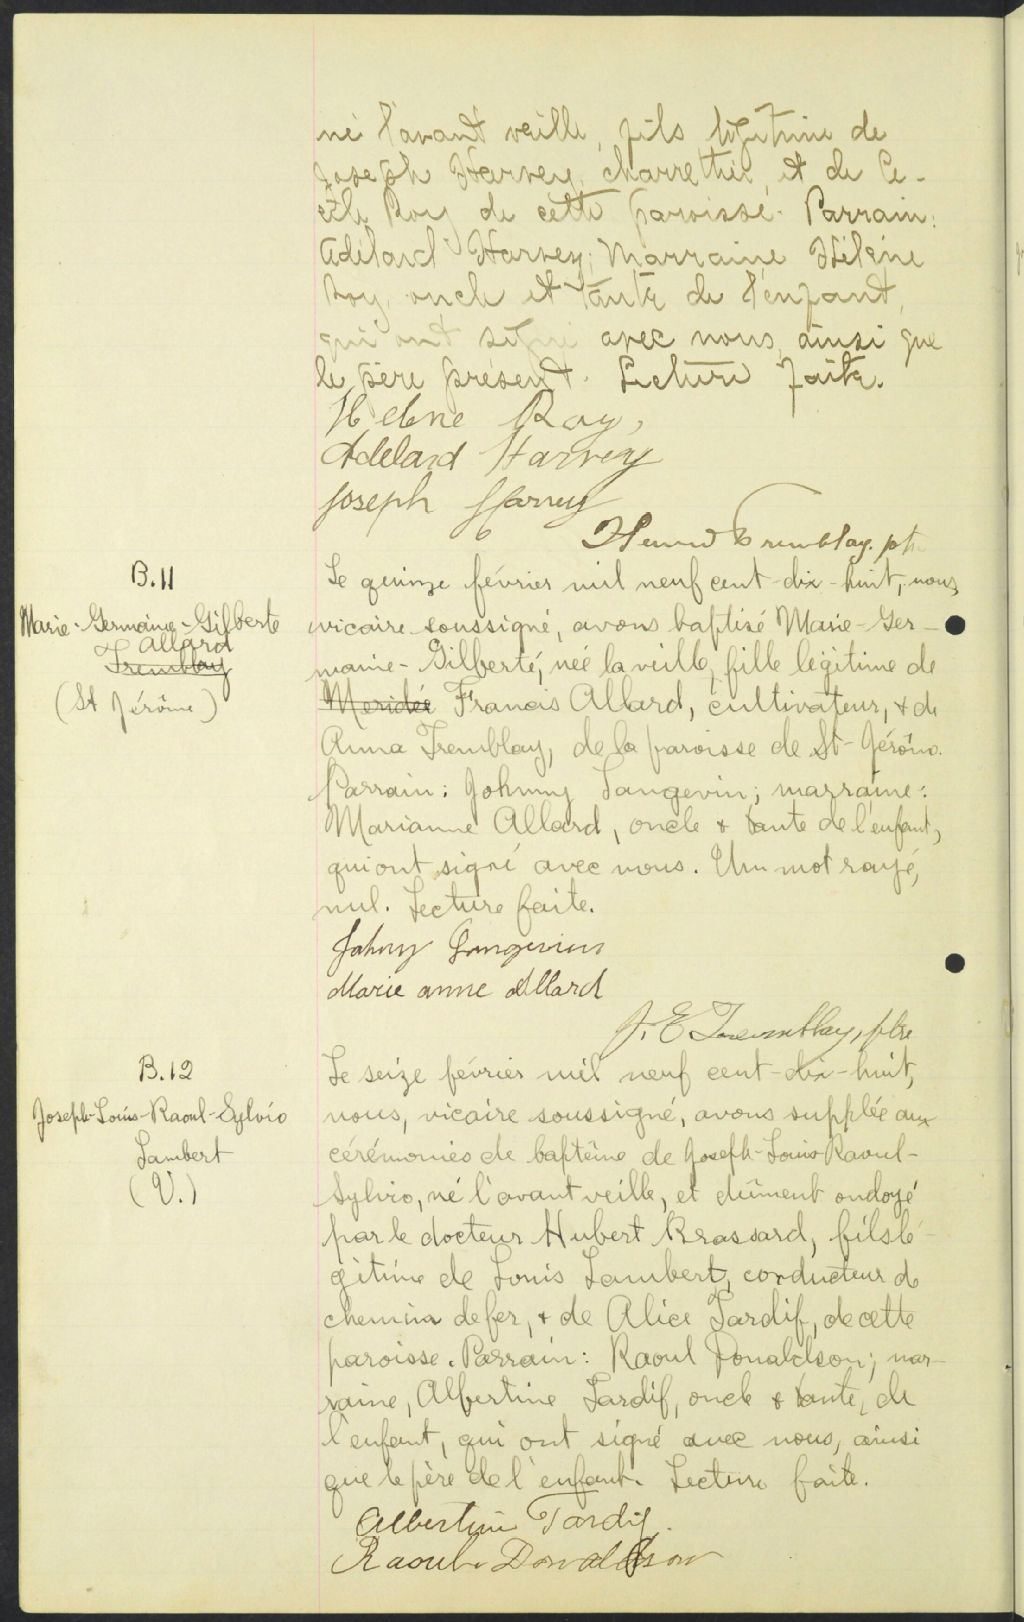 né l'avant veille, fils légitime de
Joseph Harvey, charretier, et de Cé-
cile Roy de cette paroisse. Parrain:
Adélard Harvey; Marraine Hélène
Roy, oncle et tante de l'enfant,
qui ont signé avec nous, ainsi que
le père présent. Lecture faite.
Helene Roy,
Adelard Harvey
Joseph Harvey
Tremblay. ptre
B.11
Marie-Germaine-Gilberte
Allard
Tremblay
(St Jérôme)
Le quinze février mil neuf cent-dix-huit, nous,
vicaire soussigné, avons baptisé Marie-Ger-
maine-Gilberte, née la veille, fille légitime de
Meridée Francis Allard, cultivateur, & de
Anna Tremblay, de la paroisse de St-Jérôme.
Parrain: Johnny Langevin; marraine:
Marianne Allard, oncle & tante de l'enfant,
qui ont signé avec nous. Un mot rayé,
nul. Lecture faite.
Johny Langevin
Marie anne Allard
J. E Tremblay, ptre
B.12
Joseph-Louis-Raoul-Sylvio
Lambert
(V.)
Le seize février mil neuf cent-dix-huit,
nous, vicaire soussigné, avons supplée aux
cérémonies de baptême de Joseph-Louis-Raoul-
Sylvio, né l'avant veille, et dûment ondoyé
par le docteur Hubert Brassard, fils lé-
gitime de Louis Lambert, conducteur de
chemin de fer, & de Alice Tardif, de cette
paroisse. Parrain: Raoul Donaldson; mar-
raine, Albertine Tardif, oncle & tante, de
l'enfant, qui ont signé avec nous, ainsi
que le père de l'enfant. Lecture faite.
Albertine Tardif.
Raoul Donaldson